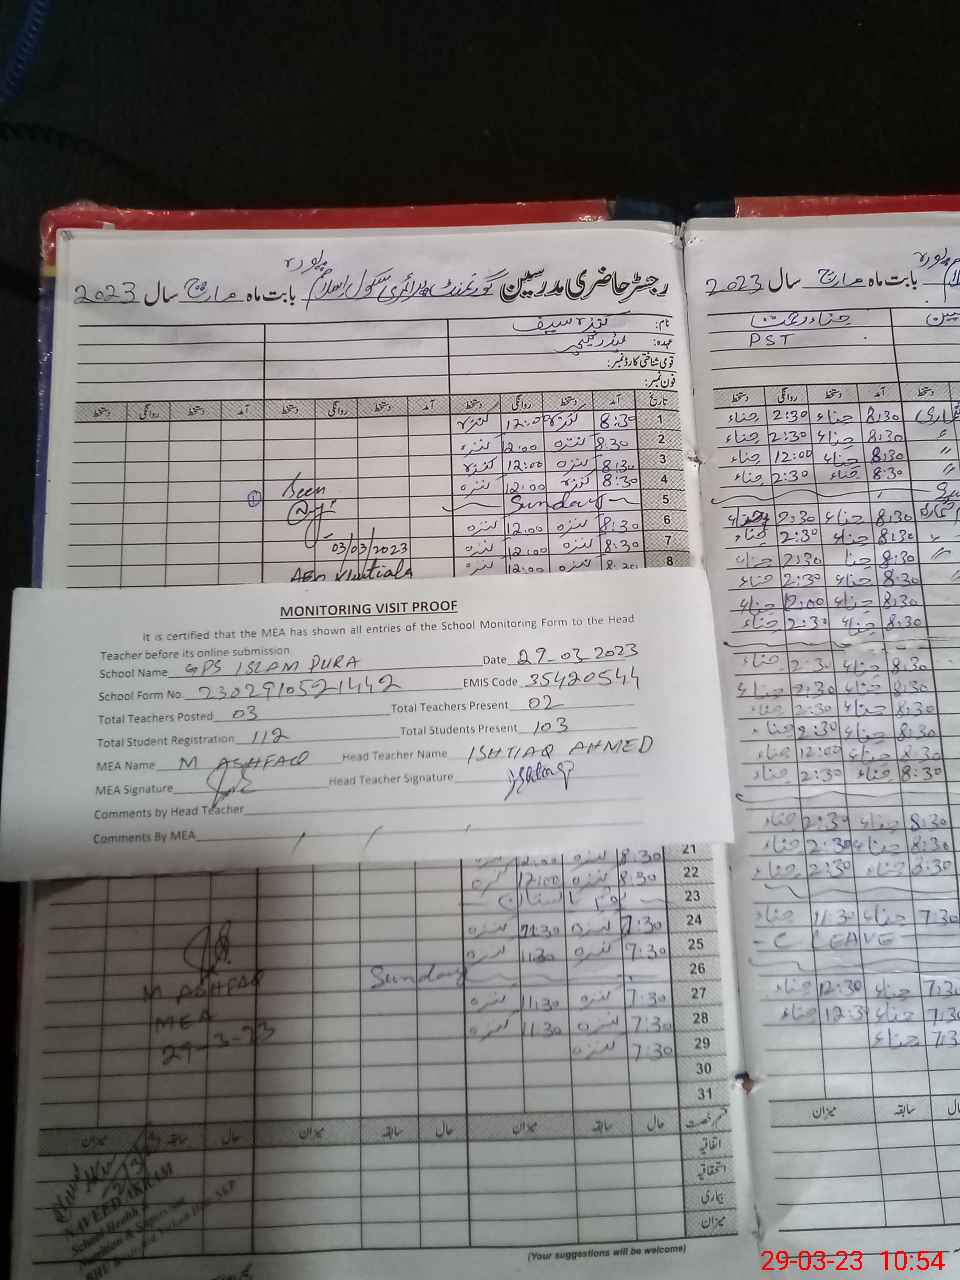 رجسٹر حاضری مدرسین گورنمنٹ پرائمری سکول اسلام پورہ بابت ماہ مارچ سال 2023
نام: کنزہ سیف
عہدہ:
قومی شناختی کارڈ نمبر:
فون نمبر:
تاریخ آمد دستخط روانگی دستخط آمد دستخط روانگی دستخط آمد دستخط روانگی دستخط
1 8:30 کنزہ 12:00 کنزہ
2 8:30 کنزہ 12:00 کنزہ
3 8:30 کنزہ 12:00 کنزہ
4 8:30 کنزہ 12:00 کنزہ
5 Sunday
6 8:30 کنزہ 12:00 کنزہ
7 8:30 کنزہ 12:00 کنزہ
8 8:30 کنزہ 12:00 کنزہ
Seen
03/03/2023
AEO
MONITORING VISIT PROOF
It is certified that the MEA has shown all entries of the School Monitoring Form to the Head
Teacher before its online submission
School Name GPS ISLAM PURA Date 29-03-2023
School Form No. 2302910521442 EMIS Code 35420544
Total Teachers Posted 03 Total Teachers Present 02
Total Student Registration 112 Total Students Present 103
MEA Name M ASHFAQ Head Teacher Name ISHTIAQ AHMED
MEA Signature Head Teacher Signature
Comments by Head Teacher
Comments By MEA
21 8:30 کنزہ 12:00 کنزہ
22 8:30 کنزہ 12:00 کنزہ
23 یوم پاکستان
24 7:30 کنزہ 11:30 کنزہ
25 7:30 کنزہ 11:30 کنزہ
26 Sunday
27 7:30 کنزہ 11:30 کنزہ
28 7:30 کنزہ 11:30 کنزہ
29 7:30 کنزہ
30
31
M ASHFAQ
MEA
29-3-23
قسم رخصت حال سابقہ میزان حال سابقہ میزان حال سابقہ میزان
اتفاقیہ
استحقاقیہ
بیماری
میزان
NAVEED AKRAM
School Health &
Nutrition Supervisor
(Your suggestions will be welcome)
بابت ماہ مارچ سال 2023
حناء رحمت
PST
آمد دستخط روانگی دستخط
8:30 حناء 2:30 حناء
8:30 حناء 2:30 حناء
8:30 حناء 12:00 حناء
8:30 حناء 2:30 حناء
8:30 حناء 2:30 حناء
8:30 حناء 2:30 حناء
8:30 حناء 2:30 حناء
8:30 حناء 2:30 حناء
8:30 حناء 12:00 حناء
8:30 حناء 2:30 حناء
8:30 حناء 2:30 حناء
8:30 حناء 2:30 حناء
8:30 حناء 2:30 حناء
8:30 حناء 2:30 حناء
8:30 حناء 12:00 حناء
8:30 حناء 2:30 حناء
8:30 حناء 2:30 حناء
8:30 حناء 2:30 حناء
8:30 حناء 2:30 حناء
7:30 حناء 11:30 حناء
C LEAVE
7:30 حناء 12:30 حناء
7:30 حناء 12:3 حناء
7:30 حناء
حال سابقہ میزان
29-03-23 10:54